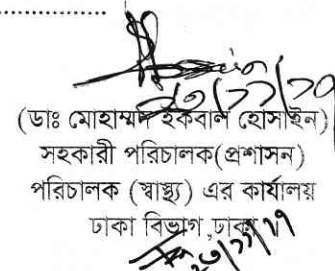 (ডাঃ মোহাম্মদ ইকবাল হোসাইন)
সহকারী পরিচালক(প্রশাসন)
পরিচালক (স্বাস্থ্য) এর কার্যালয়
ঢাকা বিভাগ,ঢাকা